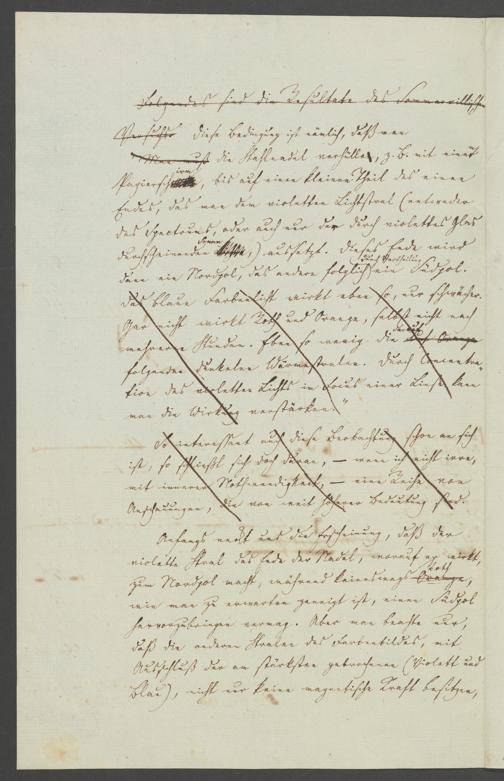 Folgendes sind die Resultate des Sommervillischen
Versuchs diese Bedingung ist nämlich, daß man
die Stahlnadel verhülle, z. B. mit einem
Papier, bis auf einen kleinen Theil des einen
Endes, das man dem violetten Lichtstral (entweder
des Spectrums, oder auch nur der durch violettes Glas
durchscheinenden Sonne) aussetzt. Dieses Ende wird
dann ein Nordpol, das andere folglich (durch Vertheilung) ein Südpol.
Das blaue Farbenlicht wirkt eben so, nur schwächer.
Gar nicht wirkt Roth und Orange, selbst nicht nach
mehreren Stunden. Eben so wenig die auf Orange
folgenden dunkelen Wärmestralen. Durch Concentra-
tion des violetten Lichts im Focus einer Linse kan
man die Wirkung verstärken."
So interessant auch diese Beobachtung schon an sich
ist, so schließt sich doch daran, — wenn ich nicht irre,
mit innerer Nothwendigkeit, — eine Reihe von
Anschauungen, die von weit höherer Bedeutung sind.
Anfangs neckt uns die Erscheinung, daß der
violette Stral das Ende der Nadel, worauf er wirkt,
zum Nordpol macht, während keineswegs Orange, Roth
wie man zu erwarten geneigt ist, einen Südpol
hervorzubringen vermag. Aber man beachte nur,
daß die anderen Stralen des Farbenbildes, mit
Ausschluß der am stärksten gebrochenen (Violett und
Blau), nicht nur keine magnetische Kraft besitzen,